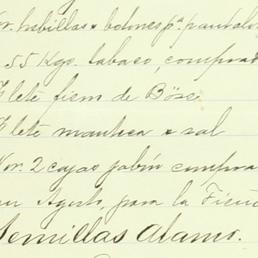 Por. hebillas & botones pa. pantalo
55 Kgs. tabaco comprad
Flete fierro de
Flete manteca & sal
Por. 2 cajas jabón compra
en Agosto, para la
Semillas Alamo.